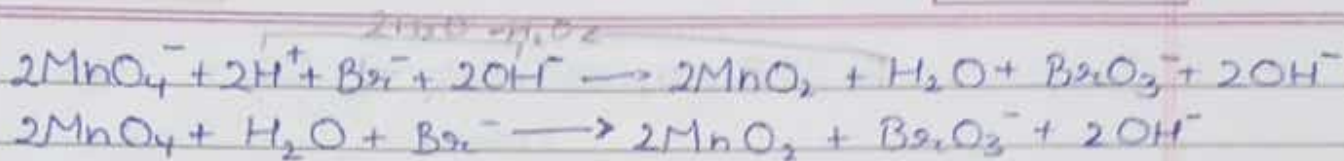 2H₂O - H₂O
2MnO₄⁻ + 2H⁺ + Br⁻ + 2OH⁻ → 2MnO₂ + H₂O + BrO₃⁻ + 2OH⁻
2MnO₄ + H₂O + Br⁻ → 2MnO₂ + BrO₃⁻ + 2OH⁻